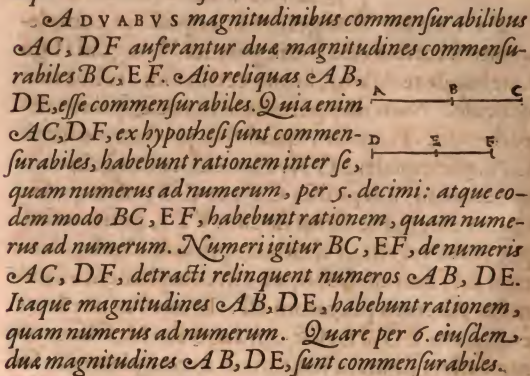 A DVABVS magnitudinibus commenſurabilibus
AC, DF auferantur duæ magnitudines commenſu-
rabiles BC, EF. Aio reliquas AB,
DE, eſſe commenſurabiles. Quia enim
A B C
AC, DF, ex hypotheſi ſunt commen-
D E F
ſurabiles, habebunt rationem inter ſe,
quam numerus ad numerum, per 5. decimi: atque eo-
dem modo BC, EF, habebunt rationem, quam nume-
rus ad numerum. Numeri igitur BC, EF, de numeris
AC, DF, detracti relinquent numeros AB, DE.
Itaque magnitudines AB, DE, habebunt rationem,
quam numerus ad numerum. Quare per 6. eiuſdem
duæ magnitudines AB, DE, ſunt commenſurabiles.